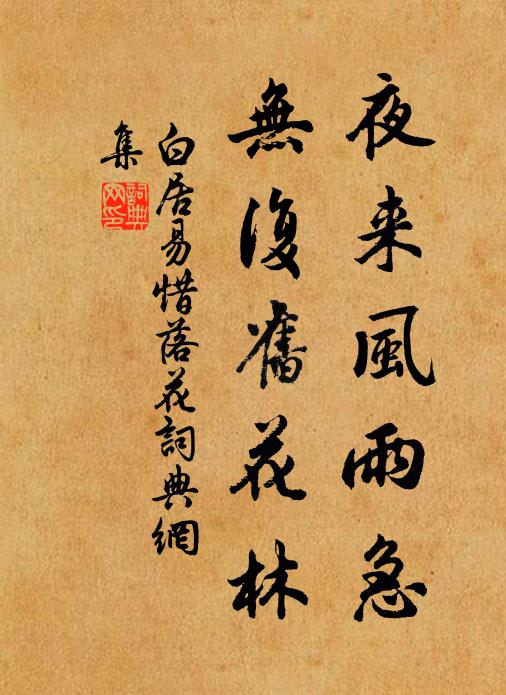 夜来風雨急
無復舊花林
白居易惜落花詞典網
集
詞典网印